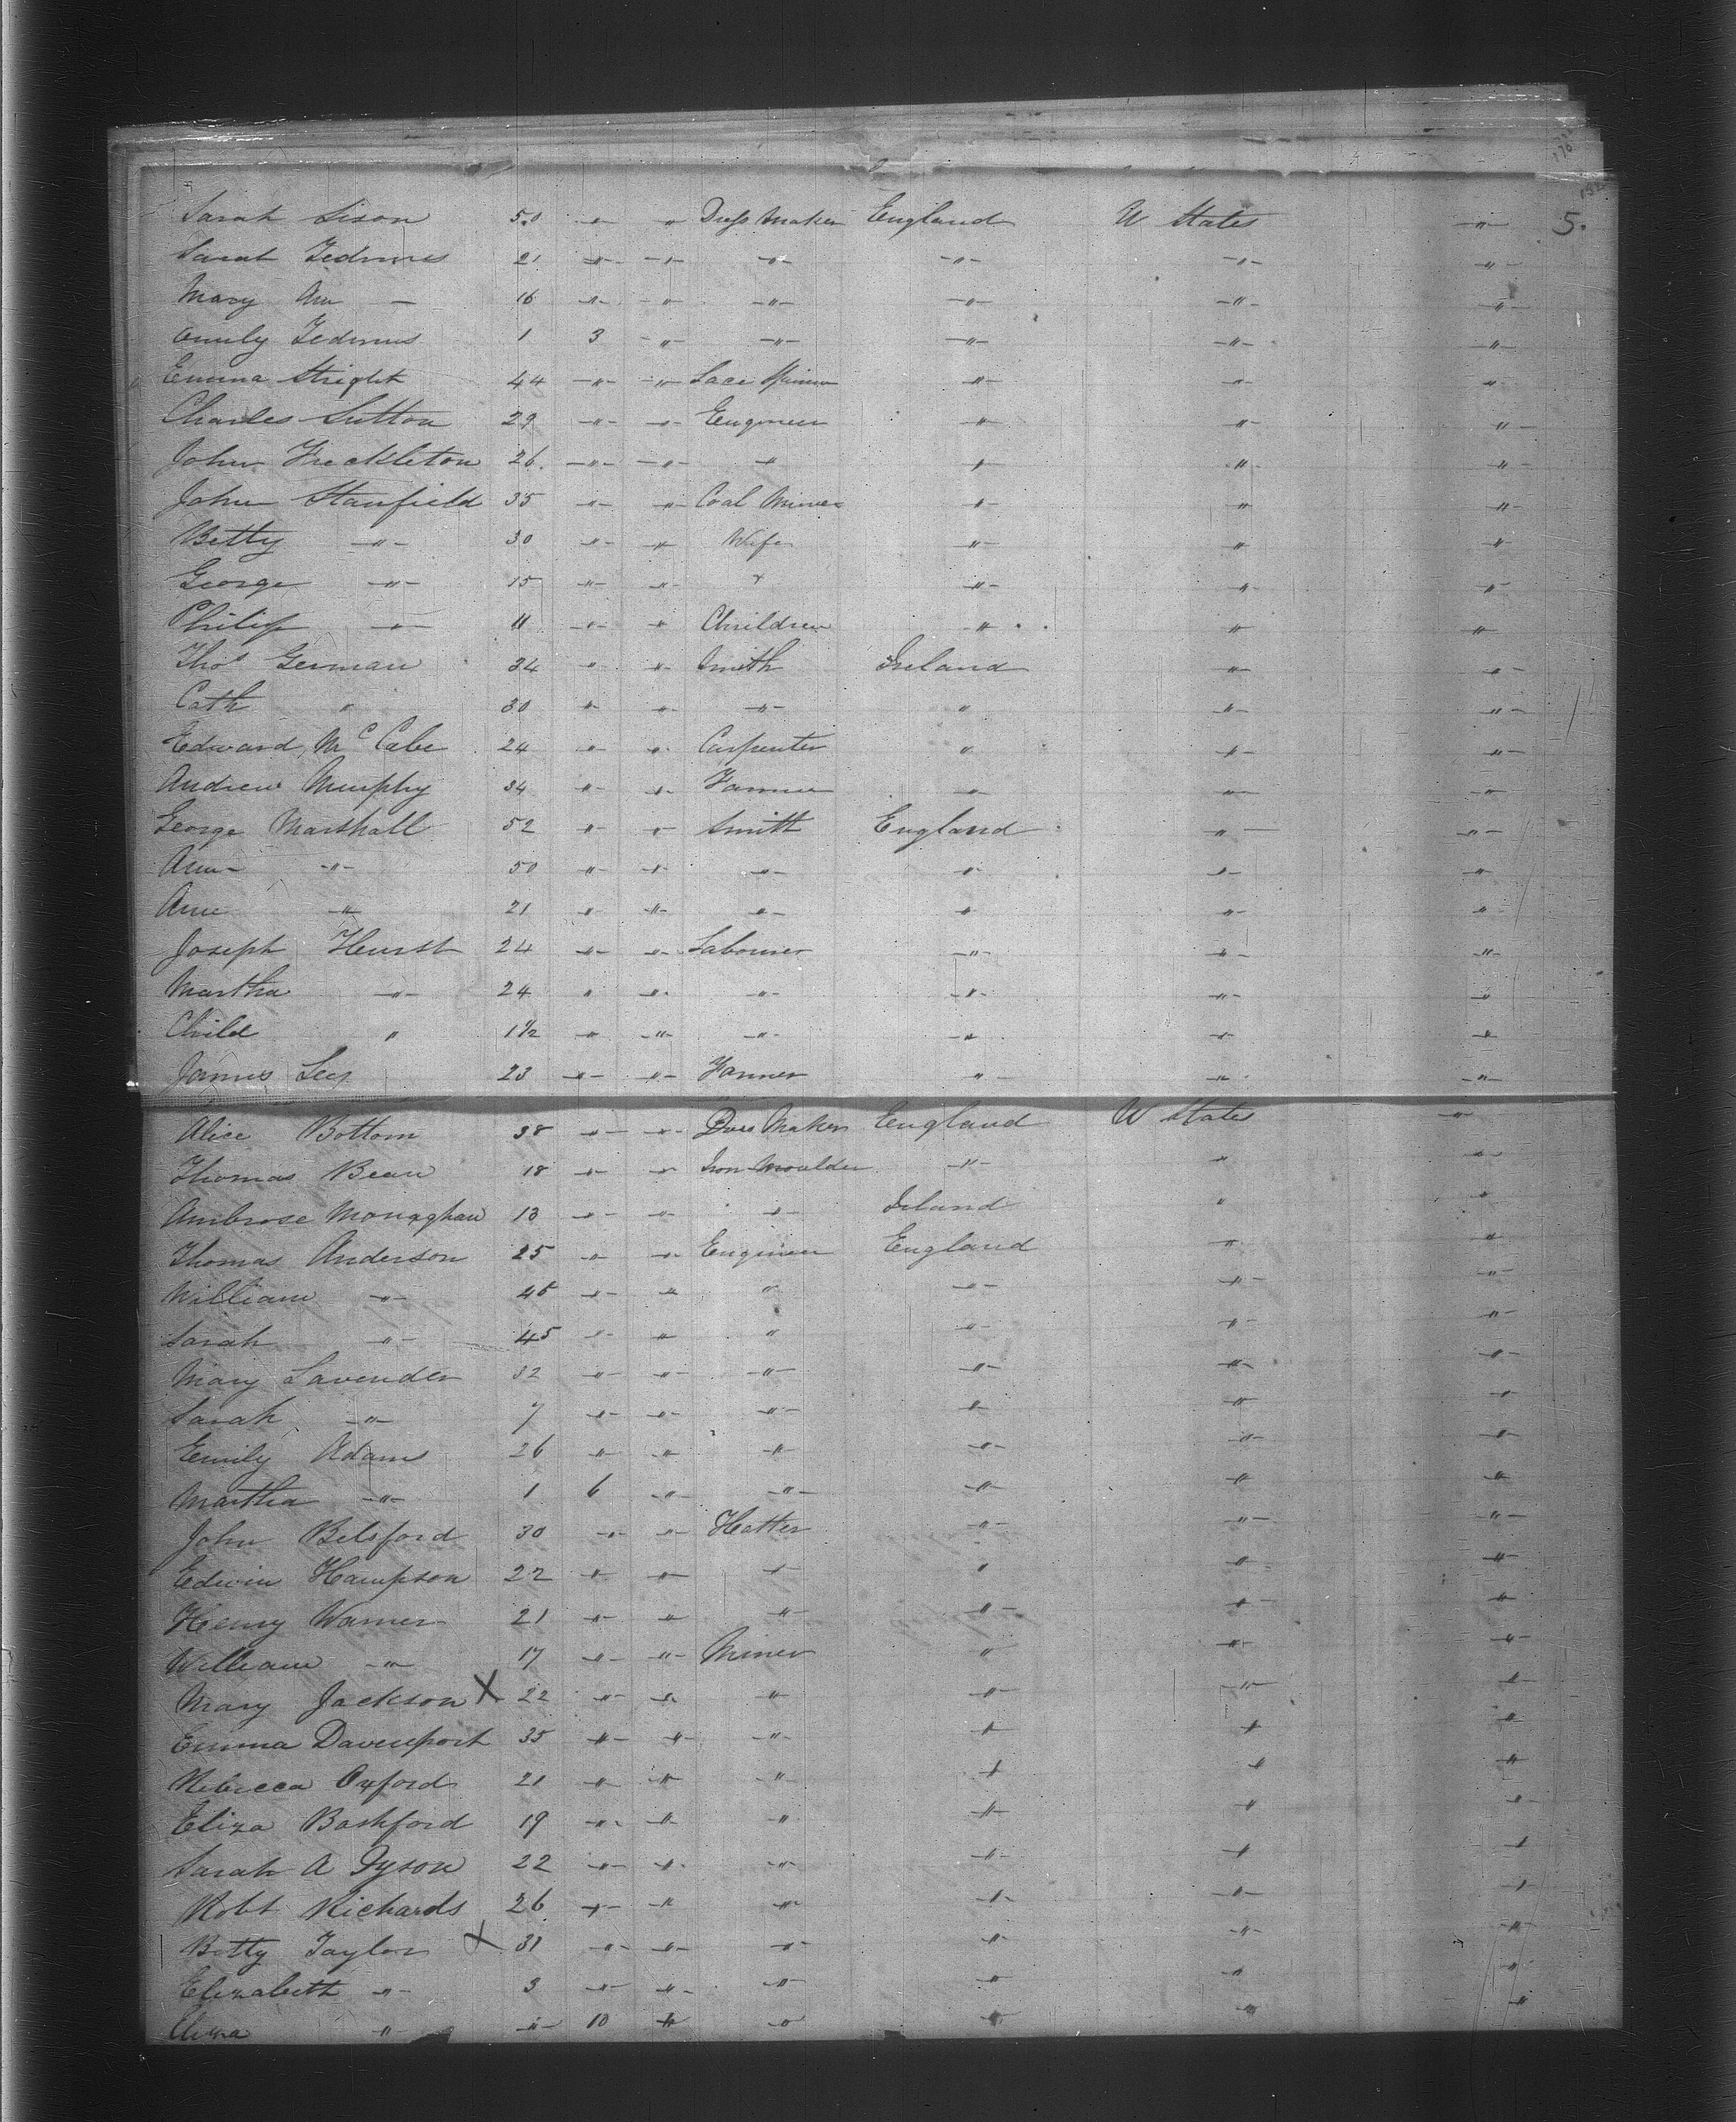 Sarah Sison 50 " " Dress Maker England U States " 5.
Sarah Tedmus 21 " " " " " "
Mary Ann — 16 " " " " " "
Emily Tedmus 1 3 " " " " "
Emma Stright 44 " " Lace Spinner " " "
Charles Sutton 29 " " Engineer " " "
John Freckleton 26 " " " " " "
John Stanfield 35 " " Coal Miner " " "
Betty " 30 " " Wife " " "
George " 15 " " " " " "
Philip " 11 " " Children " " "
Thos German 34 " " Smith Ireland " "
Cath " 30 " " " " " "
Edward McCabe 24 " " Carpenter " " "
Andrew Murphy 34 " " Farmer " " "
George Marshall 52 " " Smith England " "
Ann " 50 " " " " " "
Ann " 21 " " " " " "
Joseph Hurst 24 " " Labourer " " "
Martha " 24 " " " " " "
Child " 1 1/2 " " " " " "
James Lees 23 " " Farmer " " "
Alice Bottom 38 " " Dress Maker England U States "
Thomas Bean 18 " " Iron Moulder " " "
Ambrose Monaghan 13 " " " Ireland " "
Thomas Anderson 25 " " Engineer England " "
William " 45 " " " " " "
Sarah " 45 " " " " " "
Mary Lavender 32 " " " " " "
Sarah " 7 " " " " " "
Emily Adams 26 " " " " " "
Martha " 1 6 " " " " "
John Belsford 30 " " Hatter " " "
Edwin Hampson 22 " " " " " "
Henry Warner 21 " " " " " "
William " 17 " " Miner " " "
Mary Jackson X 22 " " " " " "
Emma Davenport 35 " " " " " "
Rebecca Oxford 21 " " " " " "
Eliza Bashford 19 " " " " " "
Sarah A Dyson 22 " " " " " "
Robt Richards 26 " " " " " "
Betty Taylor X 31 " " " " " "
Elizabeth " 3 " " " " " "
" " 10 " " " " "